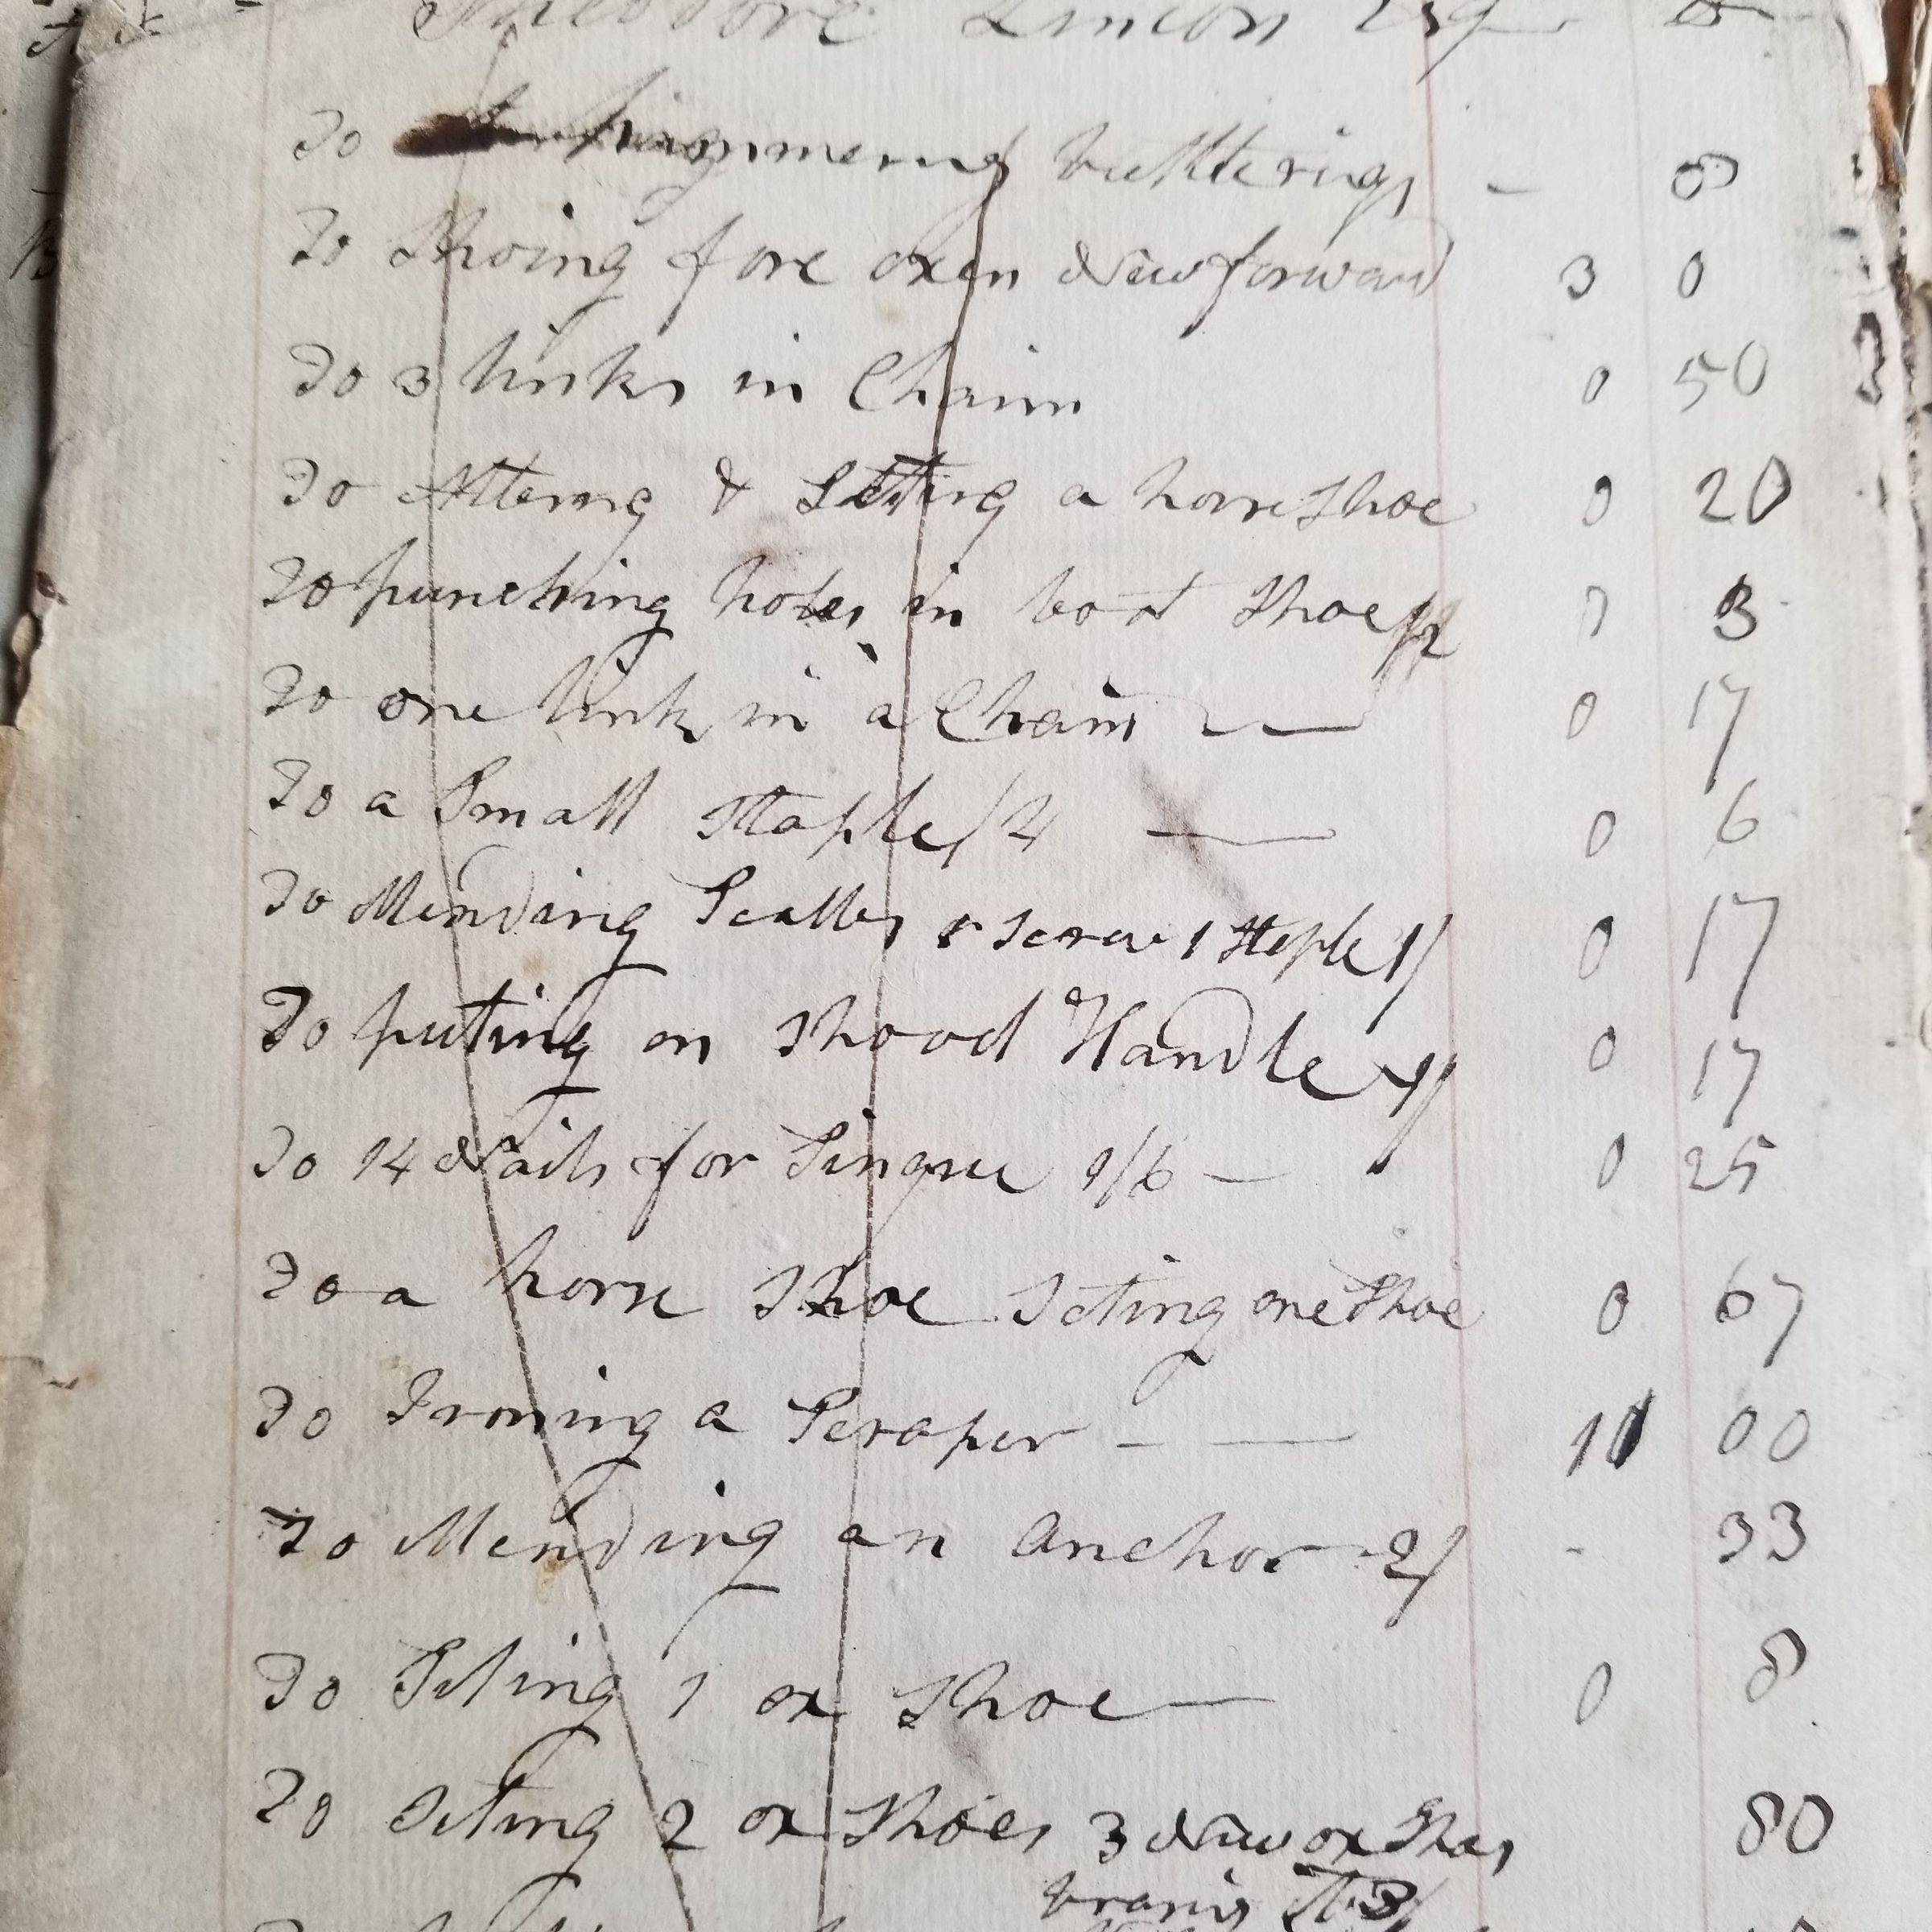 Theodore Lincoln Esq Dr
To hammering buttering - 8
To Shoing fore oxen New forward 3 0
To 3 links in Chain 0 50
To Altering & Seting a horse Shoe 0 20
To punching holes in boat Shoe /2 0 3
To one link in a Chain 0 17
To a Small Staple /4 0 6
To Mending Scalles & Screw 1 Staple 1/ 0 17
To puting on Shovel Handle 1/ 0 17
To 14 Nails for 1/6 - 0 25
To a horse Shoe Seting one Shoe 0 67
To Ironing a Scraper - 1 00
To Mending an Anchor 2/ - 33
To Seting 1 ox Shoe 0 8
To Seting 2 ox Shoes 3 New ox Shoes 80